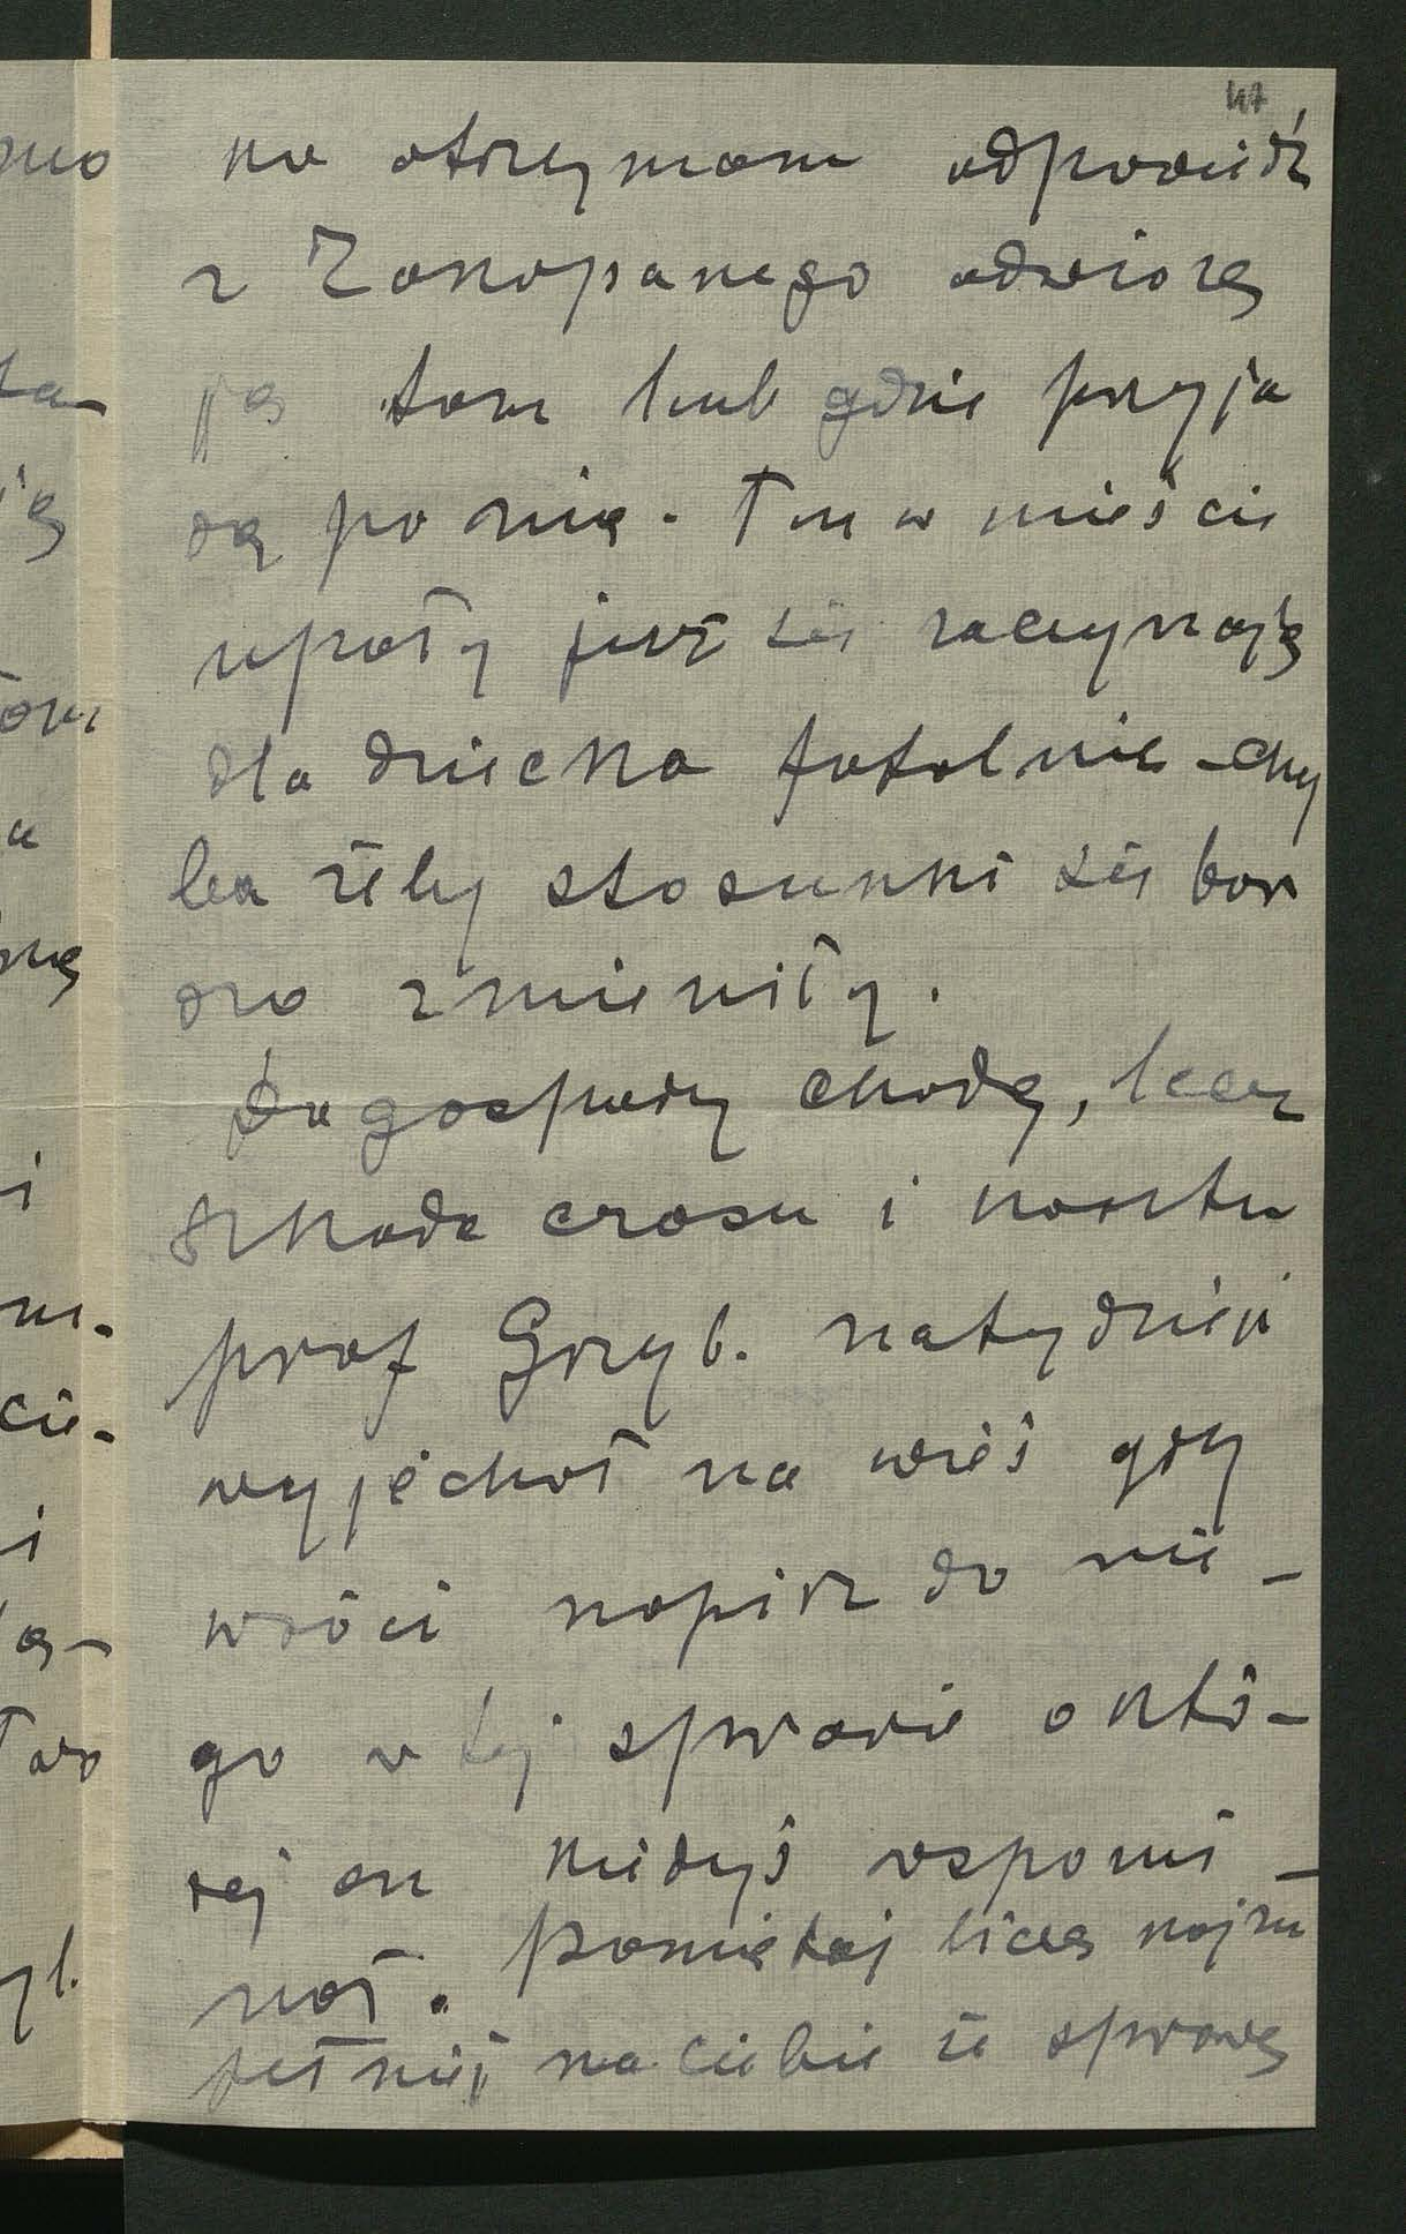 47
no otrzymam odpowiedź
z Zakopanego odwiozę
ją tam lub gdzie przyja
dą po nią. Tu w mieście
upały już się zaczynają
dla dziecka fatalnie - chy
ba żeby stosunki się bar
dzo zmieniły.
Do gospody chodzę, lecz
szkoda czasu i kosztu
prof Grzyb. na tydzień
wyjechał na wieś gdy
wróci napisz do nie-
go w tej sprawie o któ-
rej on kiedyś wspomi-
nał. Pamiętaj liczę najzu
pełniej na Ciebie że sprawę